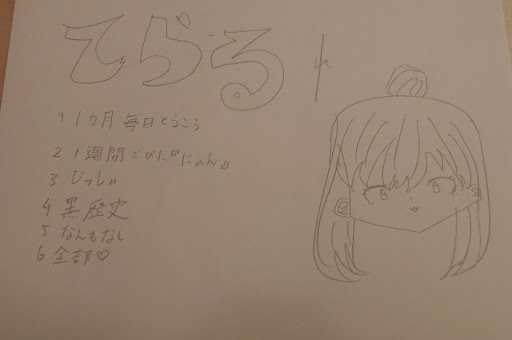 てらる
1 1カ月 毎日とうこう
2 1週間ごびに『にゃん』
3 じっしゃ
4 黒歴史
5 なんもなし
6 全部♡